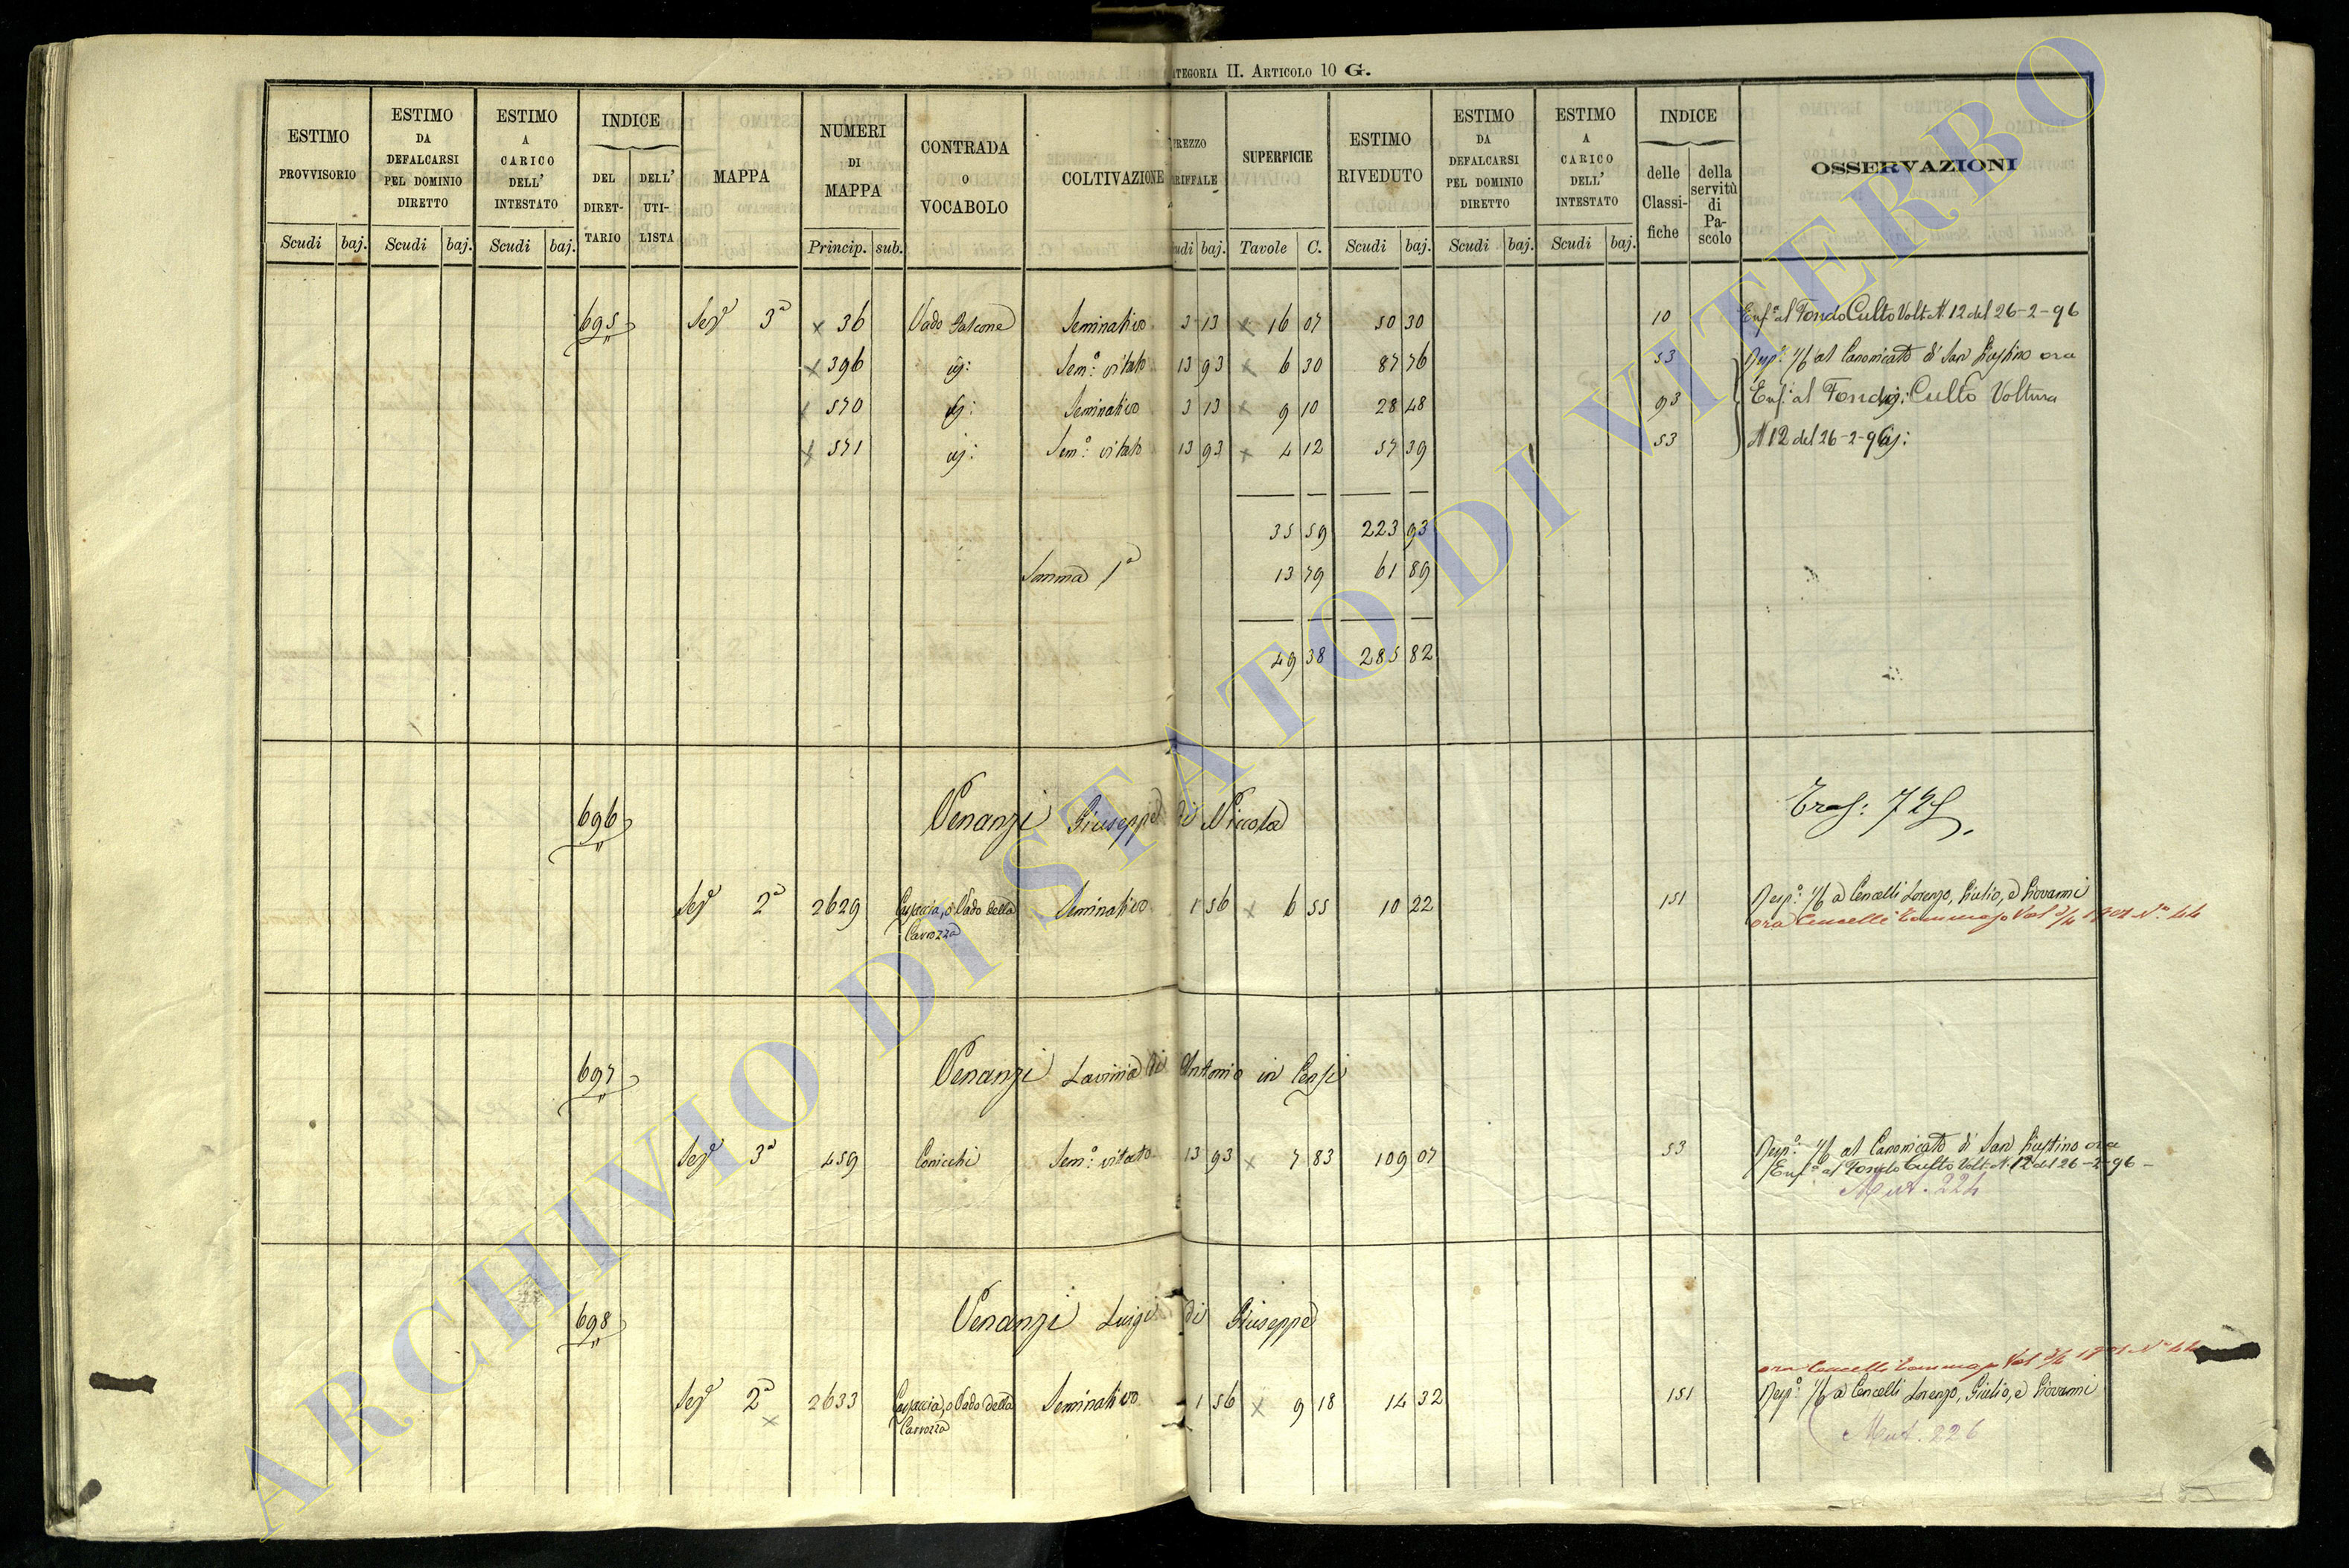 ATEGORIA II. ARTICOLO 10 G.
ESTIMO PROVVISORIO
ESTIMO DA DEFALCARSI PEL DOMINIO DIRETTO
ESTIMO A CARICO DELL' INTESTATO
INDICE
DEL DIRET-TARIO
DELL' UTI-LISTA
MAPPA
NUMERI DI MAPPA
CONTRADA O VOCABOLO
COLTIVAZIONE
REZZO
RIFFALE
SUPERFICIE
ESTIMO RIVEDUTO
ESTIMO DA DEFALCARSI PEL DOMINIO DIRETTO
ESTIMO A CARICO DELL' INTESTATO
INDICE
delle Classi-fiche
della servitù di Pa-scolo
OSSERVAZIONI
Scudi baj. Scudi baj. Scudi baj. Princip. sub. udi baj. Tavole C. Scudi baj. Scudi baj. Scudi baj.
695 Sezᵉ 3ª x 36 Vado Falcone Seminativo 3 13 x 16 07 50 30 10 Enfª al Fondo Culto Volt. N. 12 del 26-2-96
x 396 iij: Sem:º vitato 13 93 x 6 30 87 76 53 Respª: 1/6 al Canonicato di San Giustino ora
x 570 iij: Seminativo 3 13 x 9 10 28 48 93 Enf:ª al Fondo Culto Voltura
x 571 iij: Sem:º vitato 13 93 x 4 12 57 39 53 N 12 del 26-2-96 iij:
35 59 223 93
Somma 1ª 13 79 61 89
49 38 285 82
696 Venanzi Giuseppe di Niccola
Sezᵉ 2ª 2629 Casaccia, o Vado della Carrozza Seminativo 1 56 x 6 55 10 22 151 Respª: 1/6 a Cencelli Lorenzo, Giulio, e Giovanni
ora Cencelli Tommaso Vol 3/4 1901 Nº 44
697 Venanzi Lavinia di Antonio in Censi
Sezᵉ 3ª 459 Conicchi Sem:º vitato 13 93 x 7 83 109 07 53 Respª: 1/6 al Canonicato di San Giustino ora
Enfª al Fondo Culto Volt. N. 12 del 26-2-96
Mut. 224
698 Venanzi Luigi di Giuseppe
ora Cencelli Tommaso Vol 3/4 1901 Nº 44
Sezᵉ 2ª x 2633 Casaccia, o Vado della Carrozza Seminativo 1 56 x 9 18 14 32 151 Respª: 1/6 a Cencelli Lorenzo, Giulio, e Giovanni
Mut. 226
ARCHIVIO DI STATO DI VITERBO